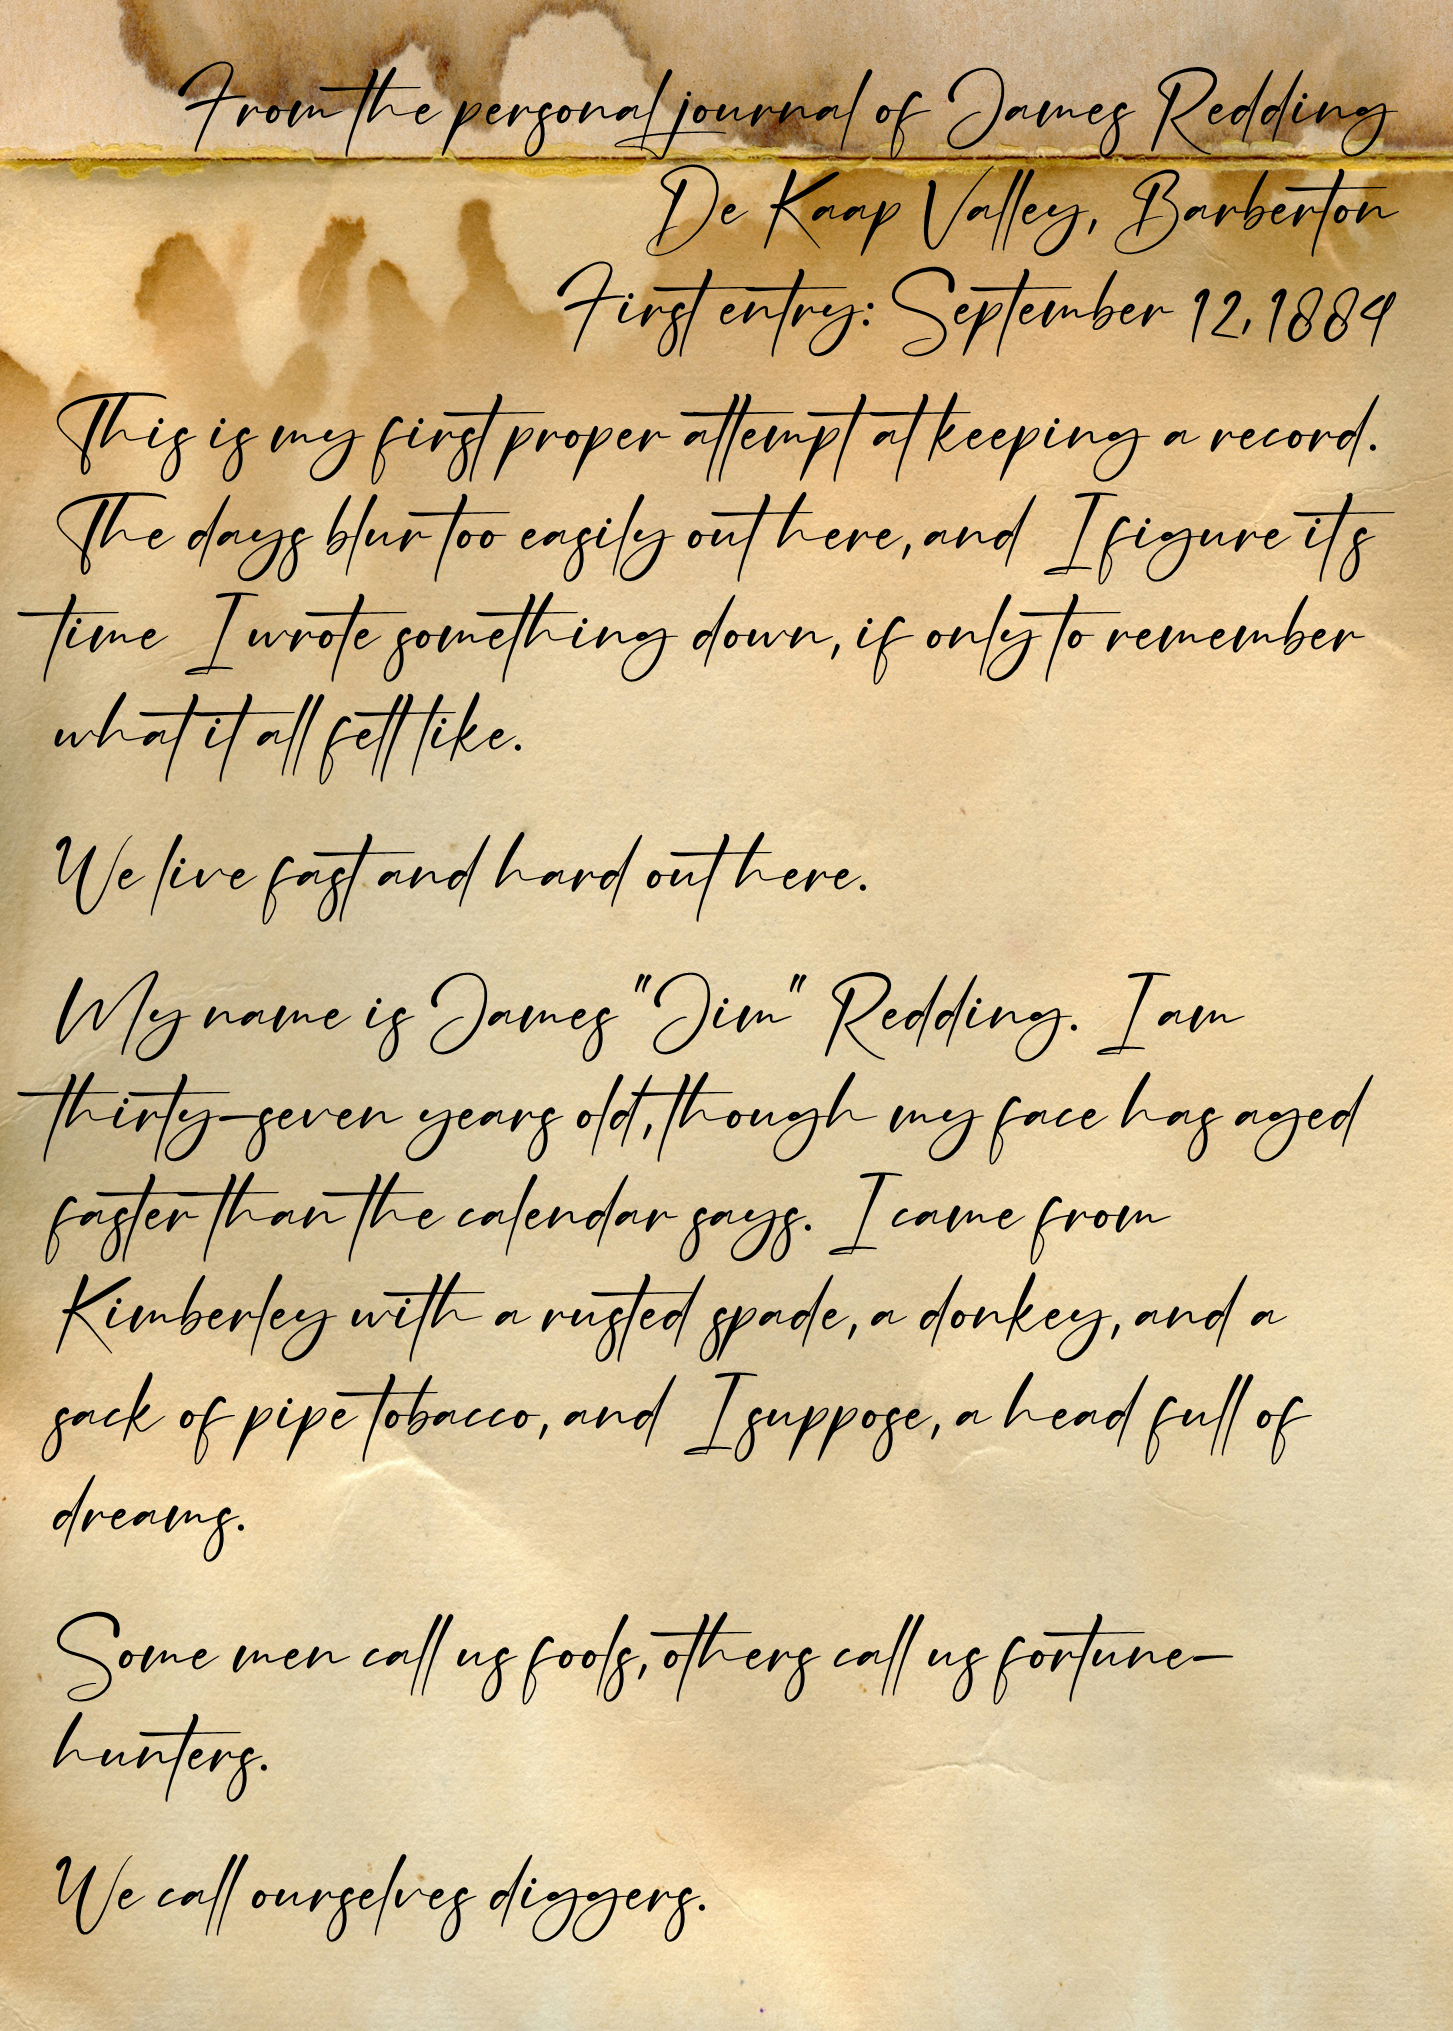 From the personal journal of James Redding
De Kaap Valley, Barberton
First entry: September 12, 1884
This is my first proper attempt at keeping a record.
The days blur too easily out here, and I figure it's
time I wrote something down, if only to remember
what it all felt like.
We live fast and hard out here.
My name is James "Jim" Redding. I am
thirty-seven years old, though my face has aged
faster than the calendar says. I came from
Kimberley with a rusted spade, a donkey, and a
sack of pipe tobacco, and I suppose, a head full of
dreams.
Some men call us fools, others call us fortune-
hunters.
We call ourselves diggers.